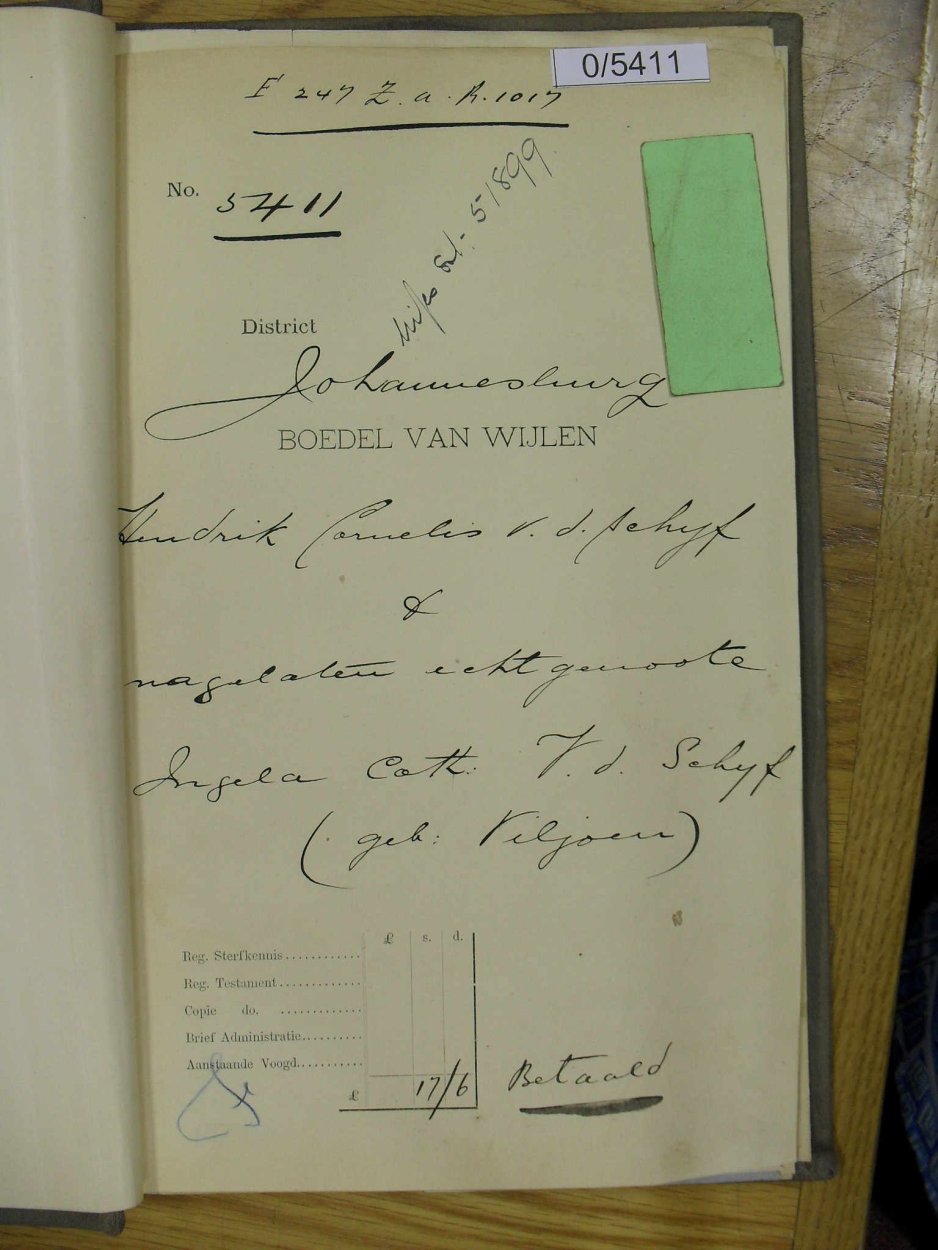 0/5411
F 247 Z.a.R. 1017
No. 5411
5/1899
District
Johannesburg
BOEDEL VAN WIJLEN
Hendrik Cornelis v. d. Schyf
&
nagelaten echtgenoote
Ingela Cath: V. d. Schyf
(geb: Viljoen)
£ s. d.
Reg. Sterfkennis............
Reg. Testament.............
Copie do. .............
Brief Administratie..........
Aanstaande Voogd..........
£ 17/6 Betaald